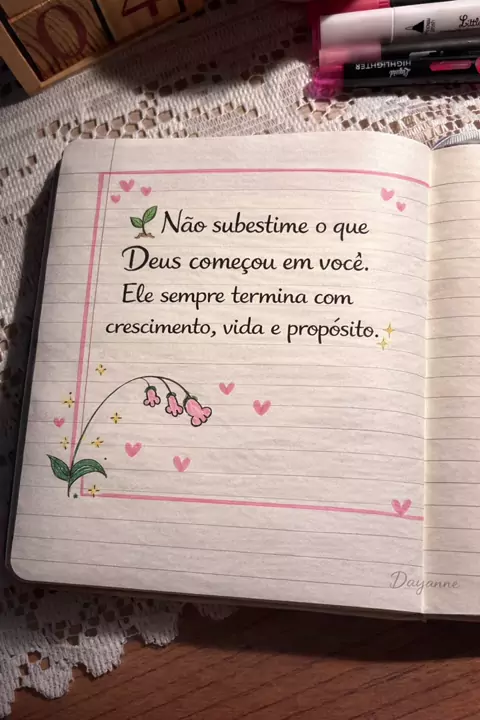 0 4
Liquid
HIGHLIGHTER
Não subestime o que
Deus começou em você.
Ele sempre termina com
crescimento, vida e propósito.
Dayanne